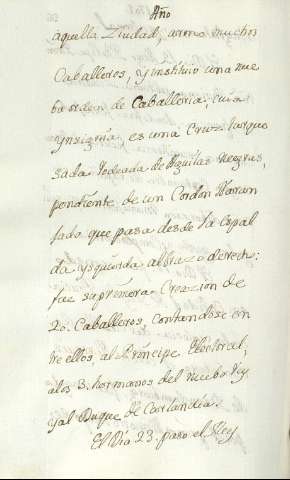 Año
aquella Ciudad, armò muchos
Caballeros, y instituio una nue
ba orden de Caballeria, cuia
Ynsignia es una Cruz turque
sada rodeada de Aguilas negras,
pendiente de un Cordon Naran
jado que pasa desde la espal
da ysquierda al brazo derecho:
fue su primera Creazion de
20. Caballeros, contandose en
tre ellos, al Principe Electoral,
a los 3. hermanos del nuebo Rey
y al Duque de Curlandia.
El Dia 23. paso el Rey